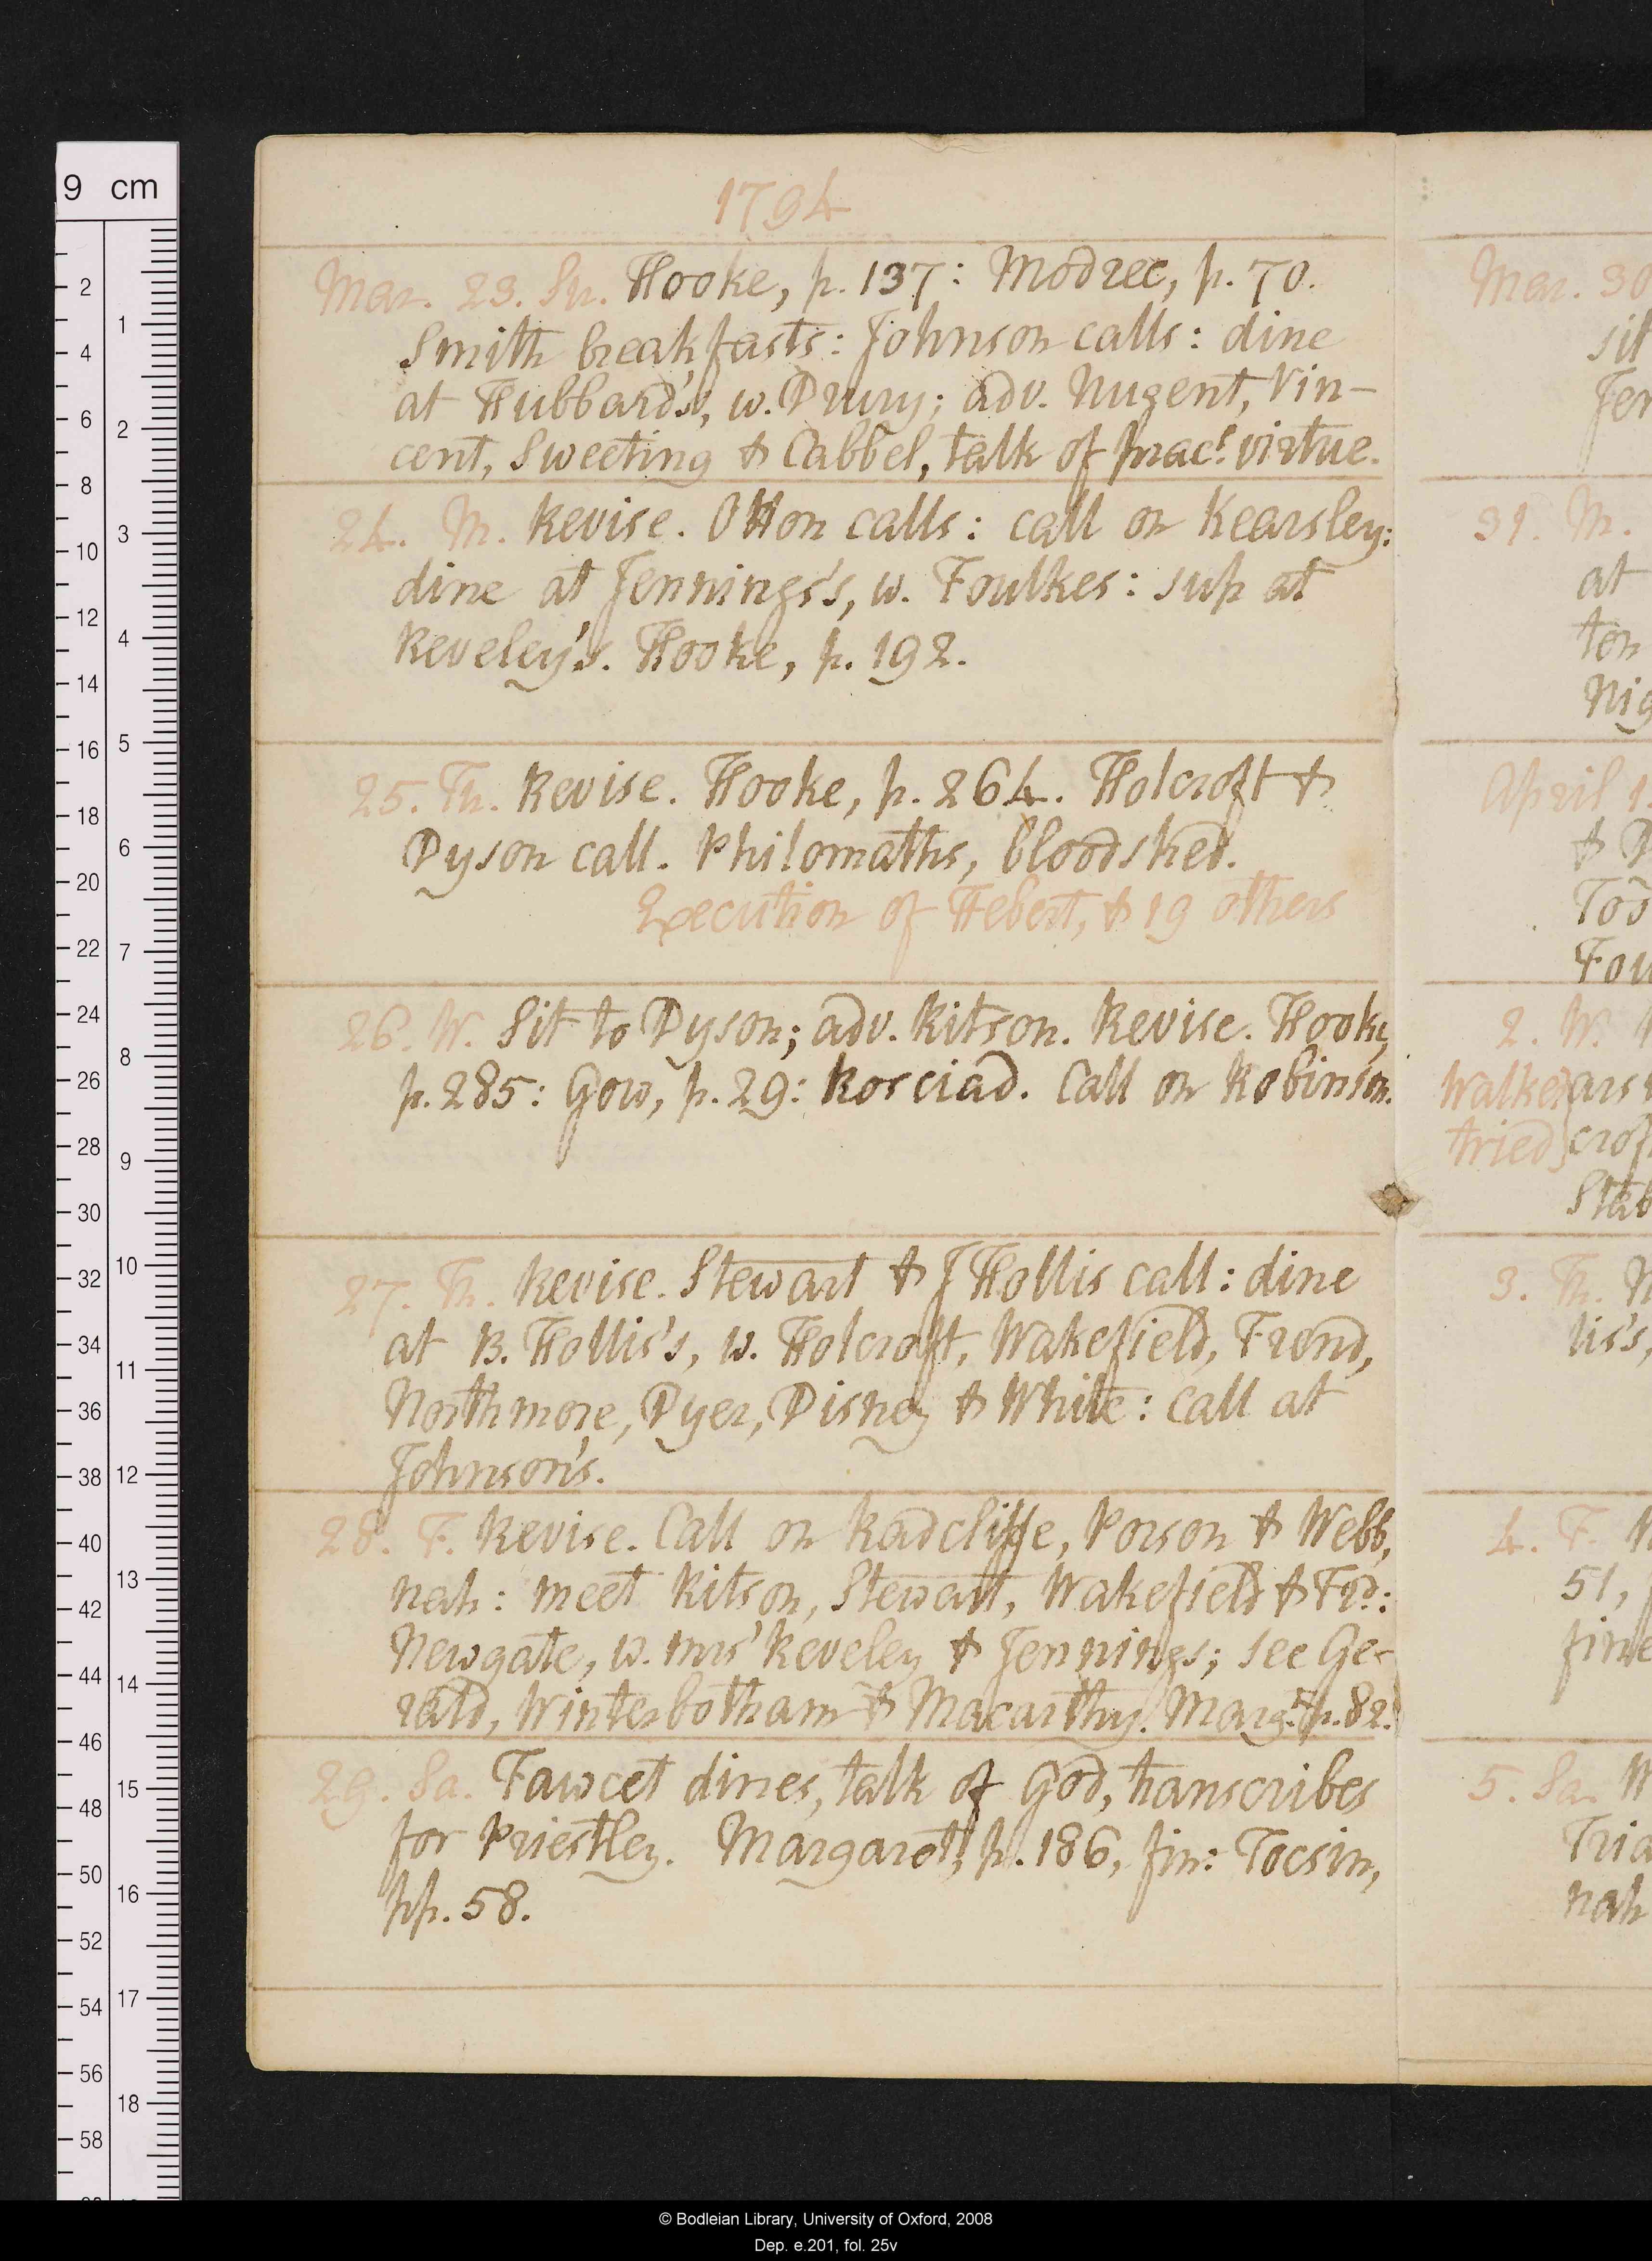 1794
Mar. 23. Su. Hooke, p. 137: Modrec, p. 70.
Smith breakfasts: Johnson calls: dine
at Hubbard's, w. Drury; adv. Nugent, Vin-
cent, Sweeting & Cabbel, talk of pracl. virtue.
24. M. Revise. Otton calls: call on Kearsley:
dine at Jennings's, w. Foulkes: sup at
Reveley's. Hooke, p. 192.
25. Tu. Revise. Hooke, p. 264. Holcroft &
Dyson call. Philomaths, bloodshed.
Execution of Hebert, & 19 others
26. W. Sit to Dyson; adv. Ritson. Revise. Hooke,
p. 285: Gow, p. 29: Rosciad. Call on Robinson.
27. Th. Revise. Stewart & J Hollis call: dine
at B. Hollis's, w. Holcroft, Wakefield, Frend,
Northmore, Dyer, Disney & White: call at
Johnson's.
28. F. Revise. Call on Radcliffe, Porson & Webb,
nah: meet Ritson, Stewart, Wakefield & Frd:
Newgate, w. mrs Reveley & Jennings; see Ge-
rald, Winterbotham & Macarthy. Margt, p. 82.
29. Sa. Fawcet dines, talk of God, transcribes
for Priestley. Margarot, p. 186, fin: Tocsin,
pp. 58.
Mar. 30
sit
Jen
31. M.
at
ton
Nig
April 1.
&
Tod
Fou
2. W.
Walker ars
tried crof
Stab
3. Th.
lis's,
4. F.
51,
fine
5. Sa.
Tria
nah
9 cm
2
4
6
8
10
12
14
16
18
20
22
24
26
28
30
32
34
36
38
40
42
44
46
48
50
52
54
56
58
1
2
3
4
5
6
7
8
9
10
11
12
13
14
15
16
17
18
© Bodleian Library, University of Oxford, 2008
Dep. e.201, fol. 25v